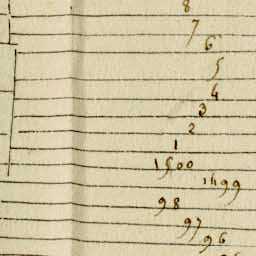 8
7
6
5
4
3
2
1
1500
1499
98
97
96